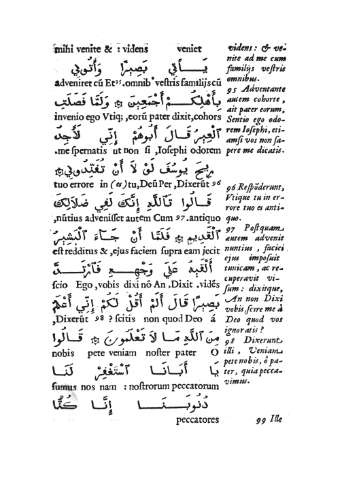 mihi venite & : videns veniet
يَأْتِ بَصِيرًا وَأْتُونِي
adveniret cũ Et 95. omnibꝰ vestris familiis cũ
بِأَهْلِكُمْ أَجْمَعِينَ ۞ وَلَمَّا فَصَلَتِ
invenio ego Vtiqꝫ, eorũ pater dixit, cohors
العِيرُ قَالَ أَبُوهُمْ إِنِّي لَأَجِدُ
me spernatis ut non si, Iosephi odorem
رِيحَ يُوسُفَ لَوْ لَا أَنْ تُفَنِّدُونِ ۞
tuo errore in (es) tu, Deũ Per, Dixerũt 96
قَالُوا تَاللَّهِ إِنَّكَ لَفِي ضَلَالِكَ
, nũtius advenisset autem Cum 97. antiquo
القَدِيمِ ۞ فَلَمَّا أَنْ جَاءَ البَشِيرُ
est redditus & , ejus faciem supra eam jecit
أَلْقَهُ عَلَى وَجْهِهِ فَارْتَدَّ
scio Ego, vobis dixi nó An. Dixit . vidẽs
بَصِيرًا قَالَ أَلَمْ أَقُلْ لَكُمْ إِنِّي أَعْلَمُ
, Dixerũt 98 ? scitis non quod Deo á
مِنَ اللَّهِ مَا لَا تَعْلَمُونَ ۞ قَالُوا
nobis pete veniam noster pater O
يَا أَبَانَا اسْتَغْفِرْ لَنَا
sumus nos nam : nostrorum peccatorum
ذُنُوبَنَا إِنَّا كُنَّا
peccatores
videns : & ve-
nite ad me cum
familijs vestris
omnibus.
95 Adventante
autem cohorte,
ait pater eorum,
Sentio ego odo-
rem Iosephi, eti-
amsi vos non sa-
pere me dicatis.
96 Respõderunt,
Vtique tu in er-
rore tuo es anti-
quo.
97 Postquam
autem advenit
nuntius, faciei
ejus imposuit
tunicam, ac re-
cuperavit vi-
sum : dixitque,
An non Dixi
vobis, me scire á
Deo quod vos
ignoratis?
98 Dixerunt
illi, Veniam
pete nobis, ô pa-
ter, quia pecca-
vimus.
99 Ille